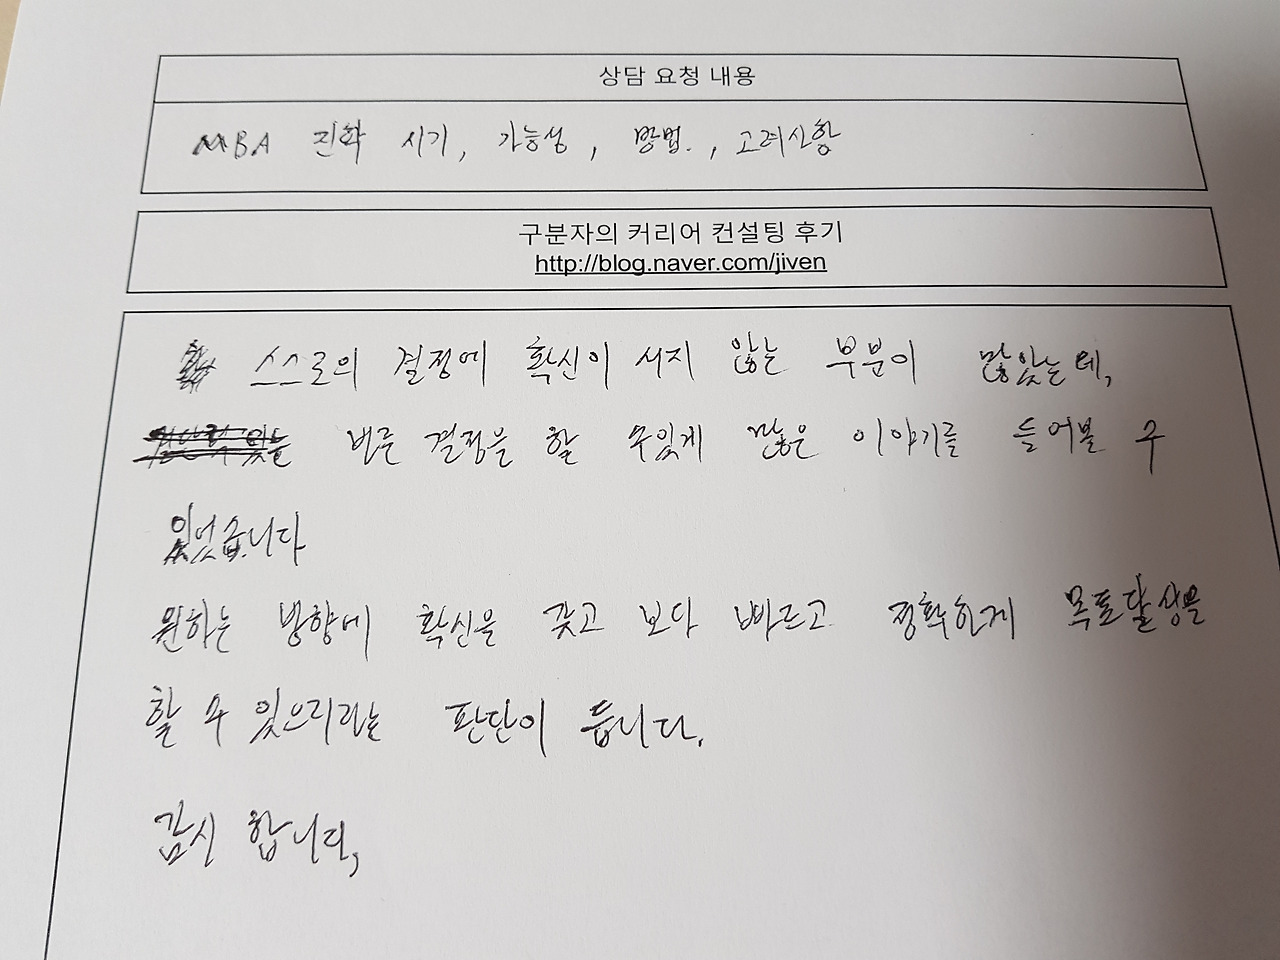 상담 요청 내용
MBA 진학 시기, 가능성, 방법, 고려사항
구분자의 커리어 컨설팅 후기
http://blog.naver.com/jiven
스스로의 결정에 확신이 서지 않는 부분이 많았는데,
바른 결정을 할 수있게 많은 이야기를 들어볼 수
있었습니다
원하는 방향에 확신을 갖고 보다 빠르고 정확하게 목표달성을
할 수 있으리라는 판단이 듭니다.
감사 합니다,